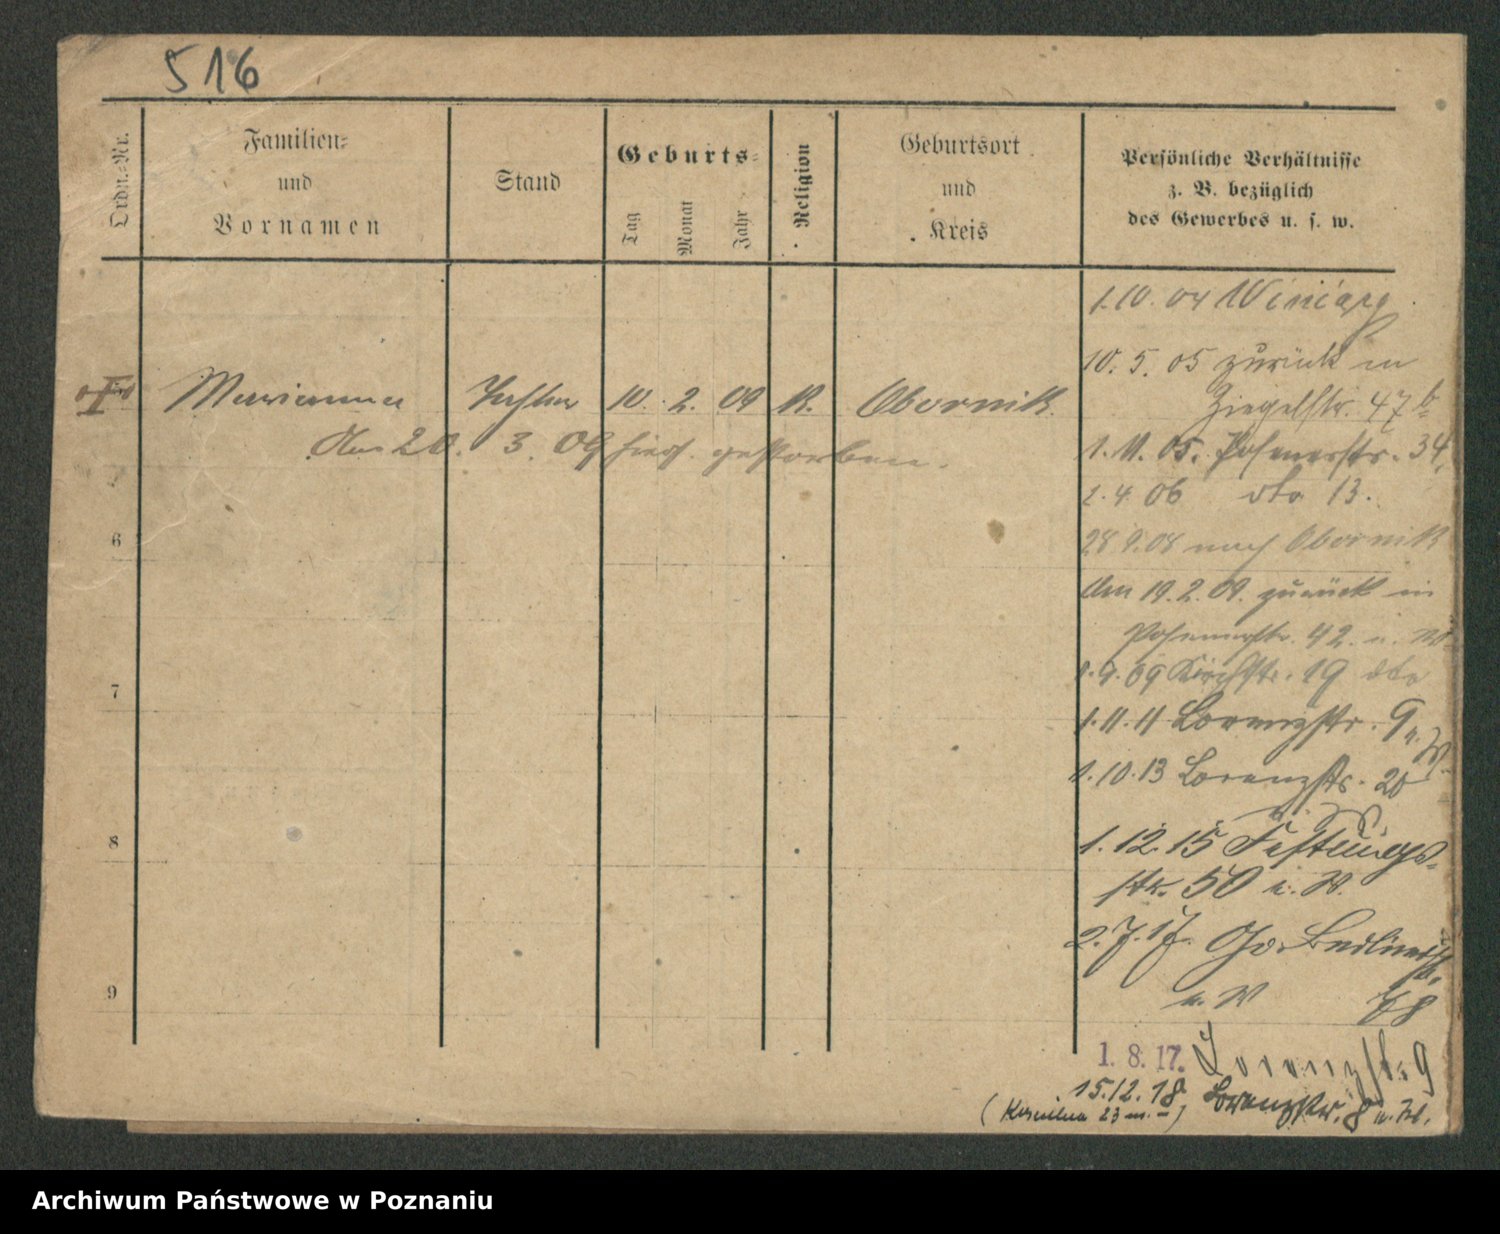 516
Ordn.-Nr.
Familien-
und
Vornamen
Stand
Geburts-
Tag
Monat
Jahr
Religion
Geburtsort
und
Kreis
Persönliche Verhältnisse
z. B. bezüglich
des Gewerbes u. s. w.
1.10.04 Winiary
10.5.05 zurück in
Ziegelstr. 47b
Marianna Tochter 10. 2. 09 K. Obornik
den 20. 3. 09 hier gestorben.
1.11.05. Posenerstr. 34.
1.4.06 dto 13.
6
28.9.08 nach Obornik
Am 19.2.09. zurück in
Posenerstr. 42. u. W
1.9.09 Kirchstr. 19 dto
7
1.11.11 Lorenzstr. 9 u. W.
1.10.13 Lorenzstr. 20
8
1.12.15 Festungs-
str. 50 u. W.
2.7.17. Gr. Berlinerstr.
u. W 78
9
1. 8. 17. Lorenzstr. 9
15.12.18. Lorenzstr. 8
Archiwum Państwowe w Poznaniu